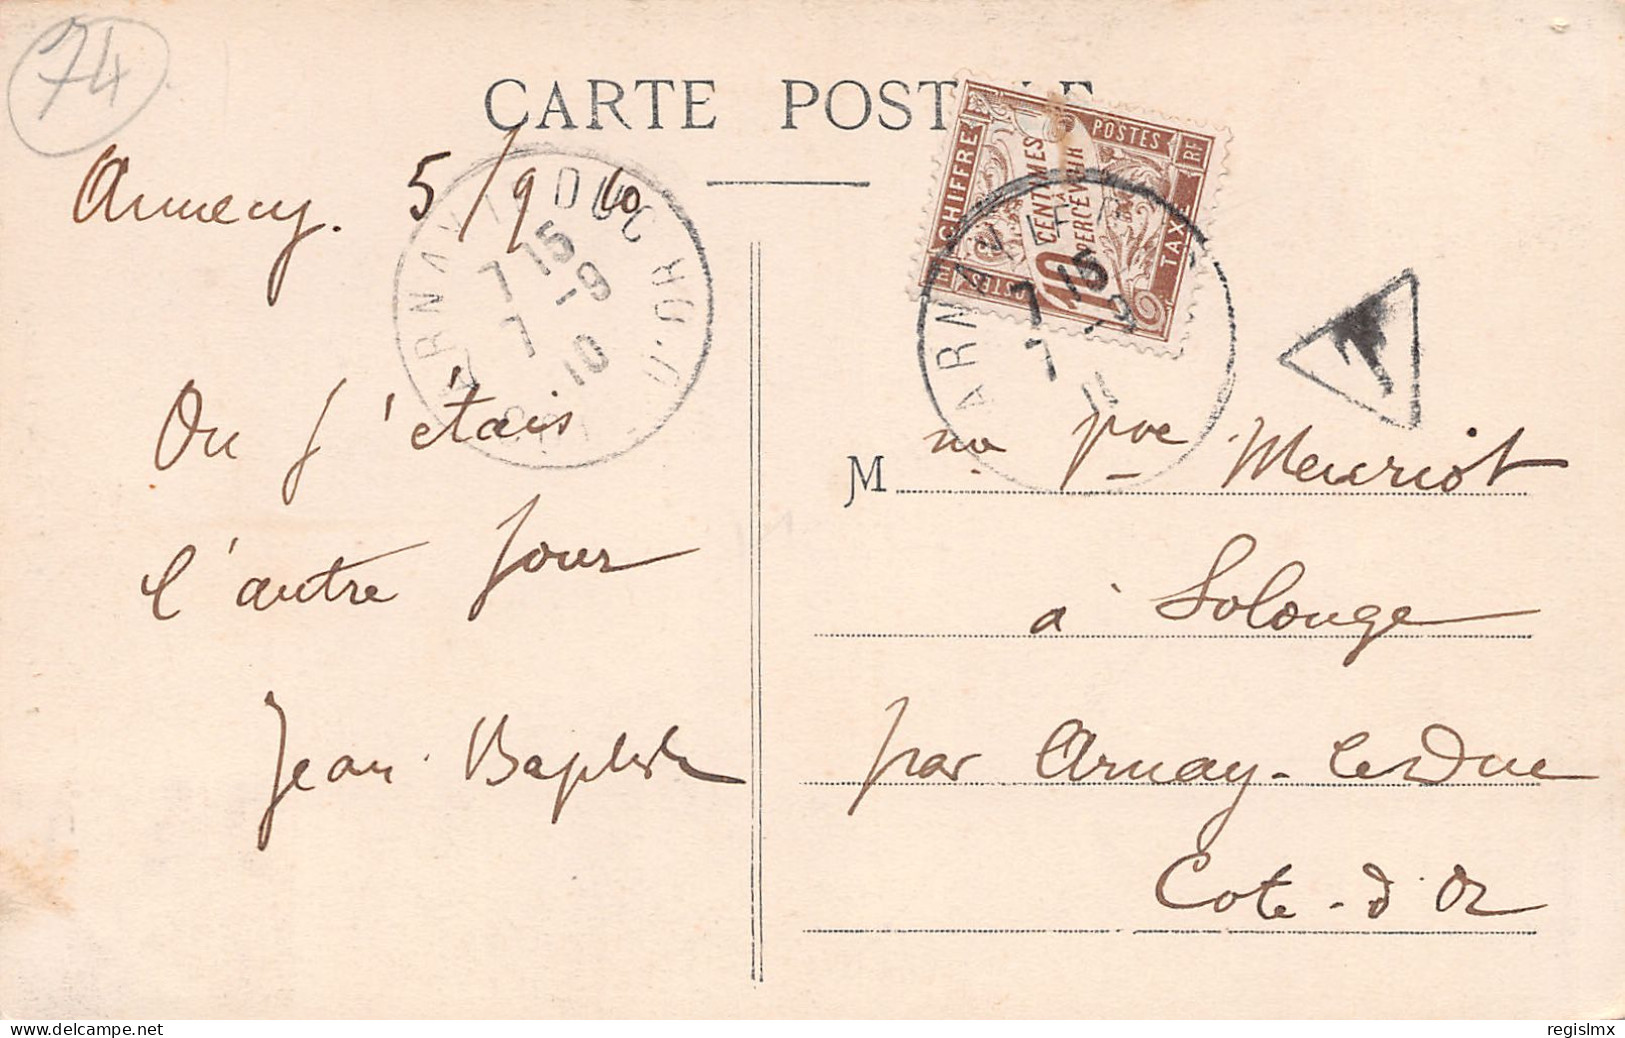 74
CARTE POSTALE
Annecy. 5/9 10
ARNAY-LE-DUC
7 15
7 -9
10
CÔTE-D'OR
CHIFFRE
POSTES
RF
TAXE
10
CENTIMES
À PERCEVOIR
POSTES
ARNAY-LE-DUC
7 15
7 -9
T
Ou j'étais
l'autre jour
Jean-Baptiste
M Meuriot
à Solonge
par Arnay-le-Duc
Cote-d'Or
www.delcampe.net
regislmx